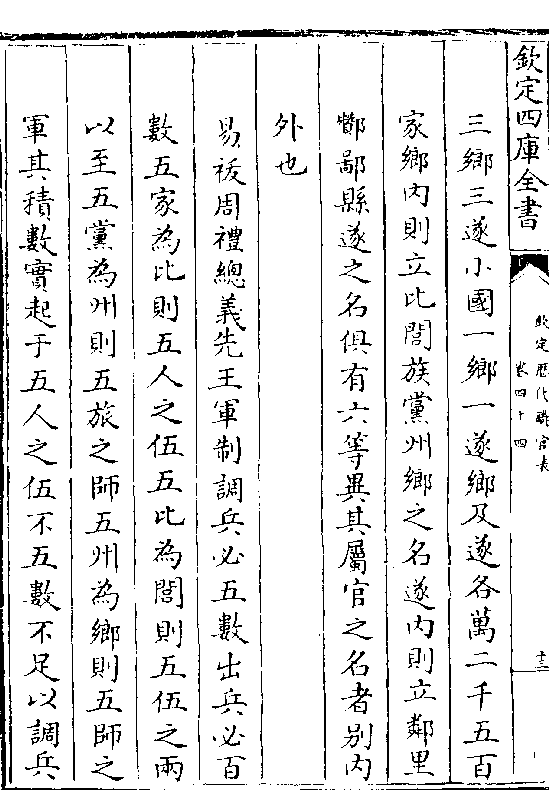 欽定四庫全書
欽定歷代職官表
卷四十四
十三
三鄉三遂小國一鄉一遂鄉及遂各萬二千五百
家鄉內則立比閭族黨州鄉之名遂內則立鄰里
酇鄙縣遂之名俱有六等異其屬官之名者別內
外也
易袚周禮總義先王軍制調兵必五數出兵必百
數五家為比則五人之伍五比為閭則五伍之兩
以至五黨為州則五旅之師五州為鄉則五師之
軍其積數實起于五人之伍不五數不足以調兵